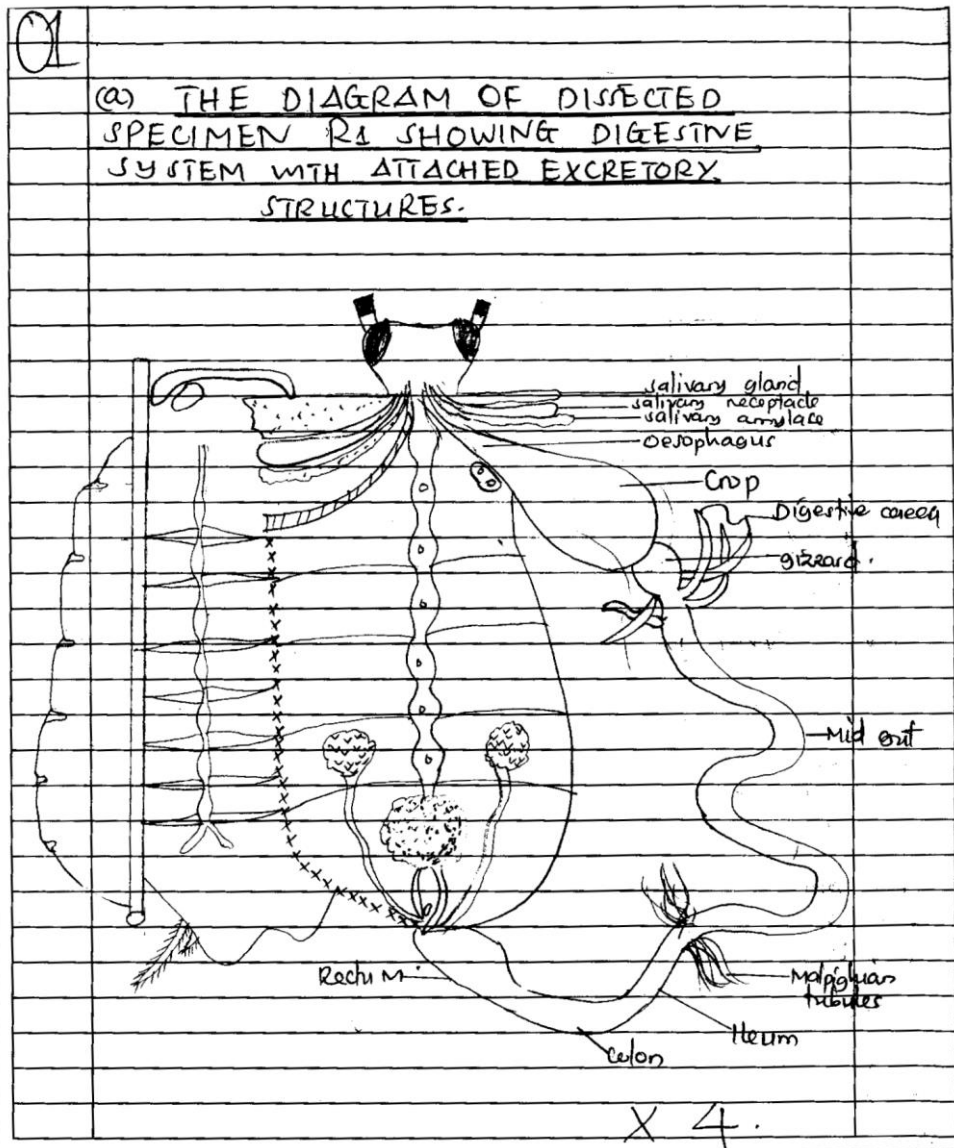 01
(a) THE DIAGRAM OF DISSECTED
SPECIMEN R1 SHOWING DIGESTIVE
SYSTEM WITH ATTACHED EXCRETORY
STRUCTURES.
salivary gland
salivary receptacle
salivary amylase
Oesophagus
Crop
Digestive caeca
gizzard.
Mid gut
Rectum
Malpighian
tubules
Ileum
Colon
X 4.